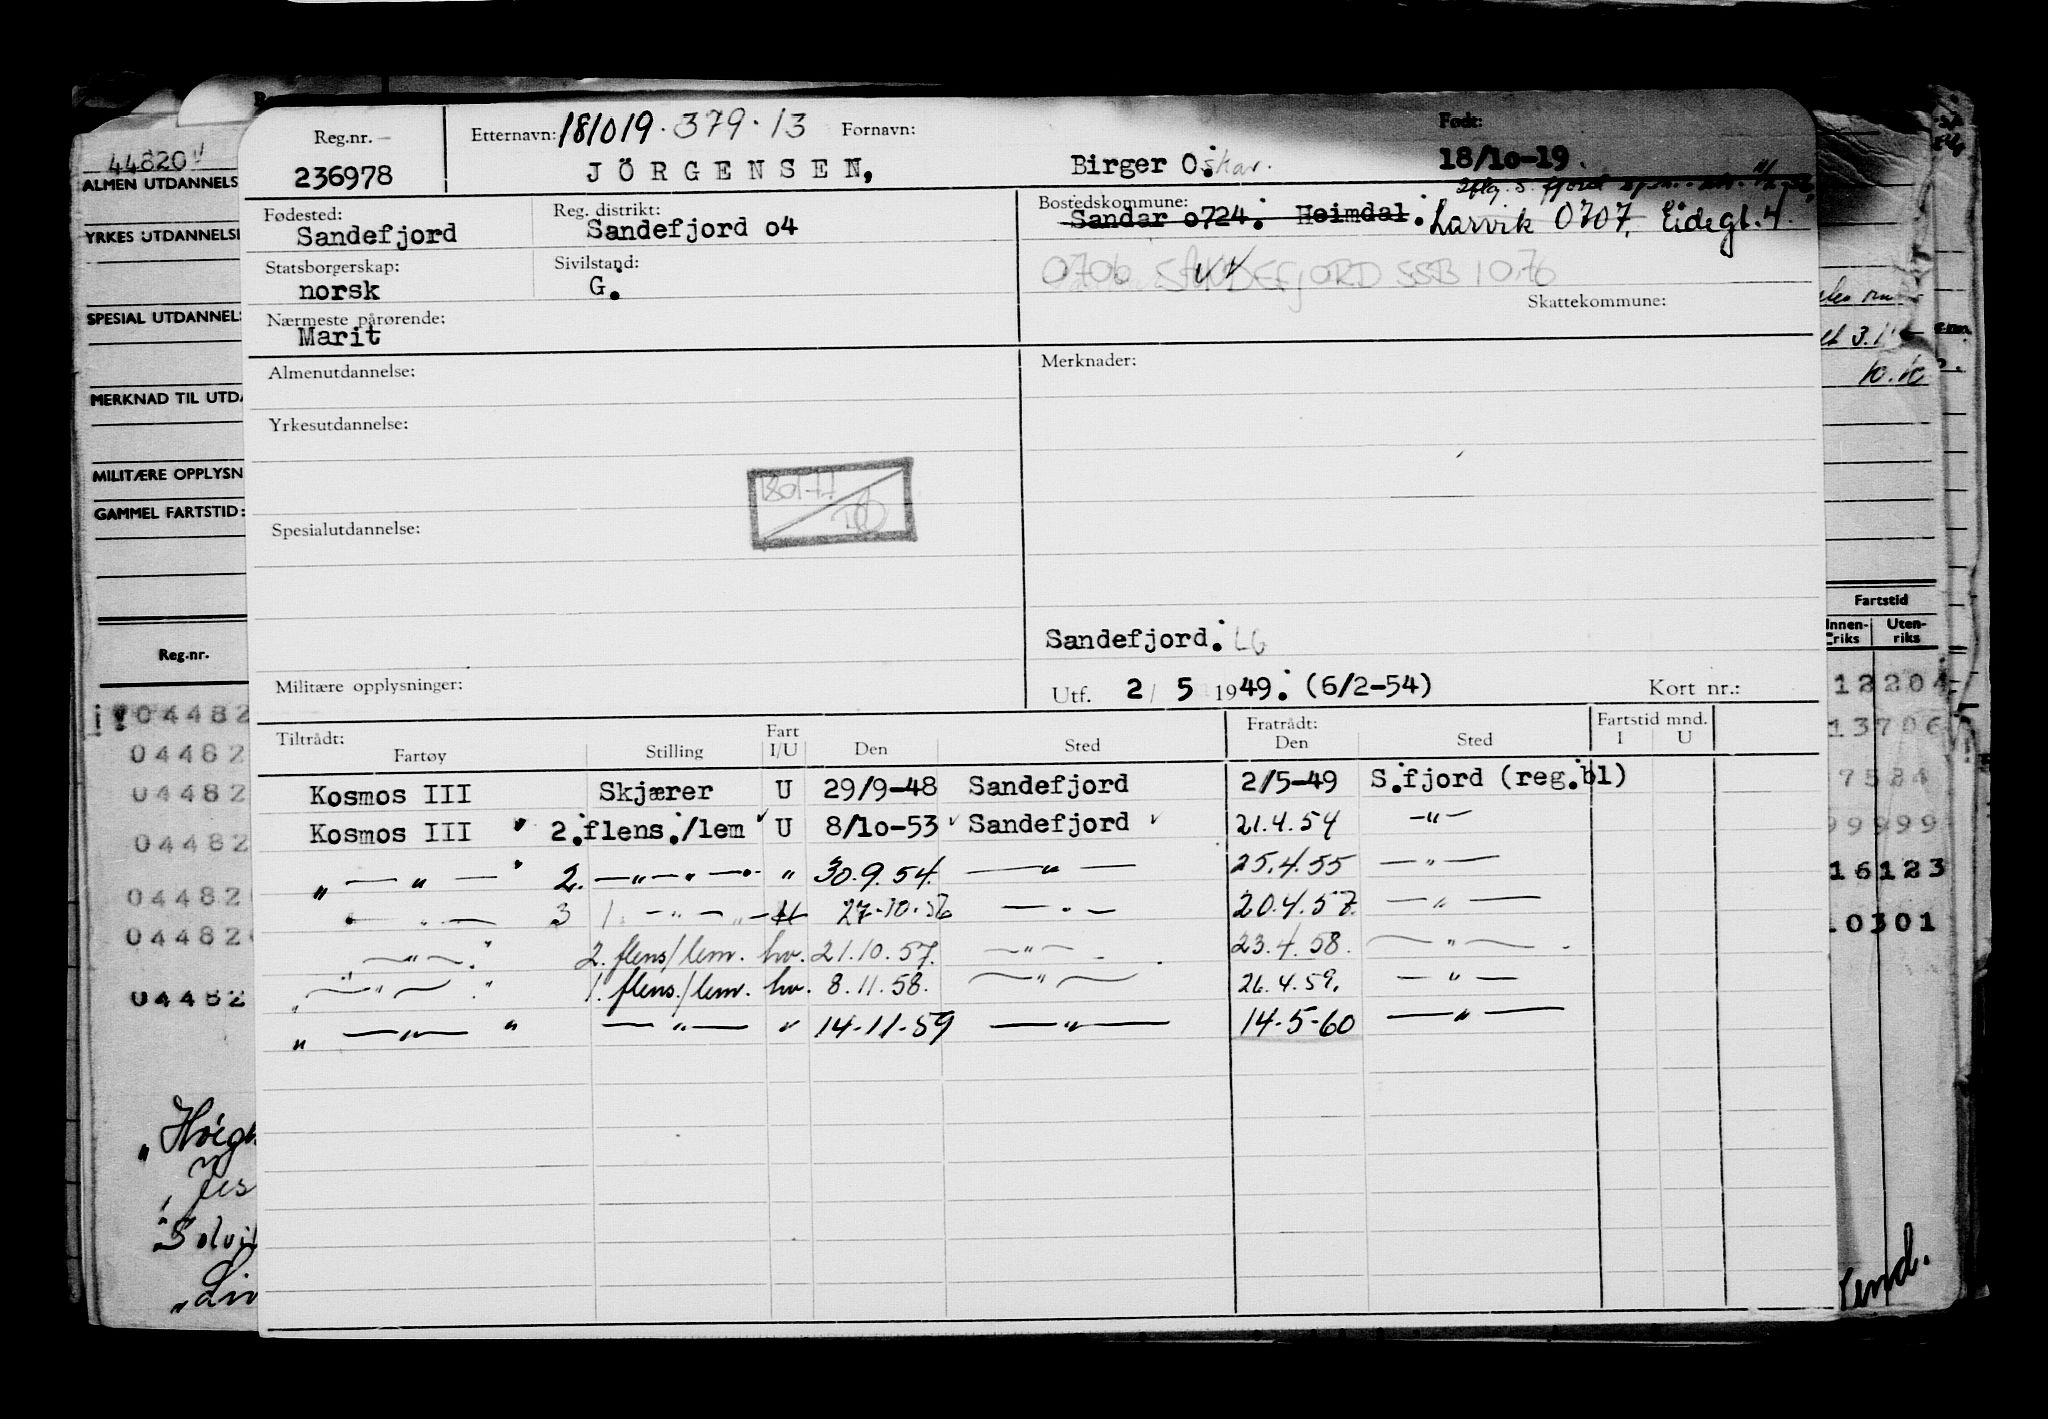 44820
ALMEN UTDANNELS
YRKES UTDANNELSE
SPESIAL UTDANNELS
MERKNAD TIL UTDA
MILITÆRE OPPLYSN
GAMMEL FARTSTID:
Reg.nr.
04482
04482
04482
04482
04482
04482
04482
Reg.nr.
236978
Etternavn: 181019.379.13
JÖRGENSEN,
Fornavn:
Birger Oskar.
Født:
18/10-19.
Fødested:
Sandefjord
Reg. distrikt:
Sandefjord 04
Bostedskommune:
Sandar 0724. Heimdal. Larvik 0707, Eidegt. 4.
Statsborgerskap:
norsk
Sivilstand:
G.
0706 SANDEFJORD SSB 10.76
Skattekommune:
Nærmeste pårørende:
Marit
Almenutdannelse:
Merknader:
Yrkesutdannelse:
Spesialutdannelse:
Sandefjord. LG
Militære opplysninger:
Utf. 2 / 5 1949. (6/2-54)
Kort nr.:
Tiltrådt:
Fartøy Stilling Fart I/U Den Sted
Fratrådt:
Den Sted
Fartstid mnd.
I U
Kosmos III Skjærer U 29/9-48 Sandefjord 2/5-49 S.fjord (reg.bl)
Kosmos III 2.flens./lem U 8/10-53 Sandefjord 21.4.54 —"—
" — " — 2. —"—"— " 30.9.54. — " — 25.4.55 — " —
— " — 27-10-56 — " — 20.4.57. — " —
—"— 2. flens/lem. hv. 21.10.57. —"— 23.4.58. — " —
" —"— " 1. flens./lem. hv. 8.11.58. — " — 26.4.59. — " —
" —"— " — " — " 14-11-59 — " — 14-5-60 — " —
Fartstid
Innen-
riks
Uten-
riks
12204
13706
7584
99999
16123
10301